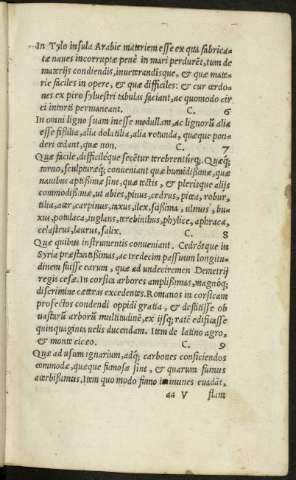 In Tylo insula Arabiæ materiem esse ex qua fabrica-
tæ naues incorruptæ penè in mari perdurēt, tum de
materijs condiendis, inueterandisque, & quæ mate-
riæ faciles in opere, & quæ difficiles: & cur cærdo-
nes ex piro syluestri tabulas faciant, ac quomodo cir
ci intorti permaneant. C. 6
In omni ligno suam inesse medullam, ac lignorū alia
esse fissilia, alia dolatilia, alia rotunda, quæque pon-
deri cedant, quæ non. C. 7
Quæ facile, difficiléque secētur terebrenturq́;. Quæq́;
torno, sculpturæq́; conueniant quæ humidissimæ, quæ
nauibus aptissimæ sint, quæ tectis, & plerisque alijs
commodissimæ, ut abies, pinus, cedrus, picea, robur,
tilia, acer, carpinus, taxus, ilex, sassima, ulmus, bu-
xus, potulaca, iuglans, terebinthus, phylice, aphraca,
celastrus, laurus, salix. C. 8
Quæ quibus instrumentis conueniant. Cedrósque in
Syria præstantissimas, ac tredecim passuum longitu-
dinem fuisse earum, quæ ad undeciremen Demetrij
regis cesæ. In corsica arbores amplissimas, magnóq;
discrimine cæteras excedentes. Romanos in corsicam
profectos condendi oppidi gratia, & destitisse ob
uasturū arborū multitudinē, ex ijsq́; ratē edificasse
quinquaginta uelis ducendam. Item de latino agro,
& monte circeo. C. 9
Quæ ad usum ignarium, adq́; carbones conficiendos
commodæ, quæque fumosæ sint, & quarum fumus
acerbissimus, Item quo modo fumo immunes euadāt,
aa V stam